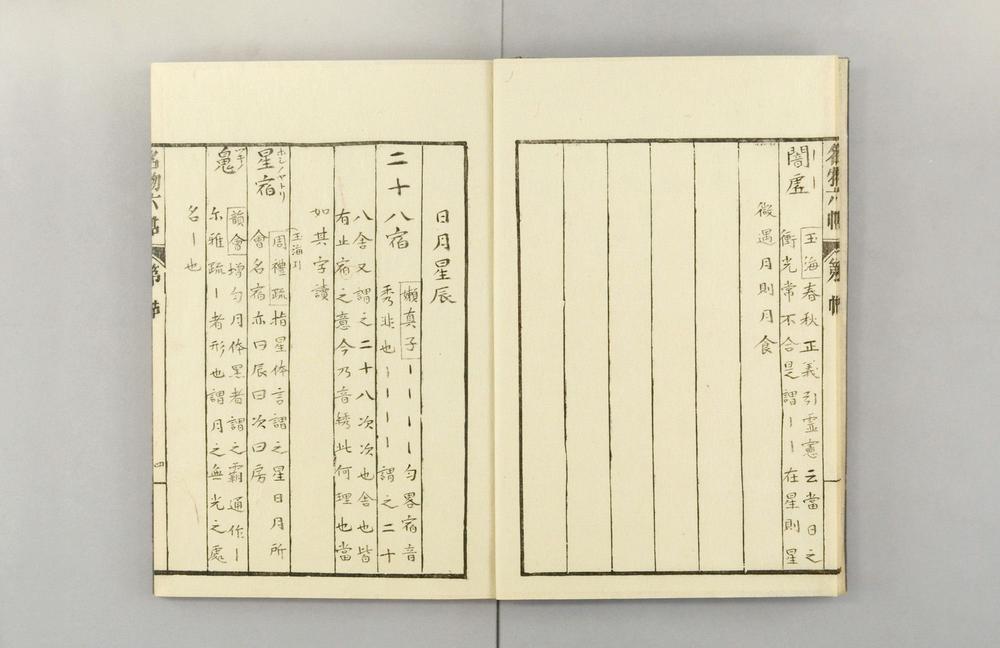 名物六帖 第 帖
闇虛
玉海春秋正義引霊憲云當日之
衝光常不合是謂ーー在星則星
微遇月則月食
日月星辰
二十八宿
嬾真子ーーーー勻畧宿音
秀非也ーーーー謂之二十
八舍又謂之二十八次次也舍也皆
有止宿之意今乃音綉此何理也當
如其字讀
星宿 ホシノヤトリ
(玉海引
周禮疏指星体言謂之星日月所
會名宿亦曰辰曰次曰房
韻會增勻月体黒者謂之霸通作ー
尓雅疏ー者形也謂月之無光之處
名ー也
名物六帖 第 帖
四